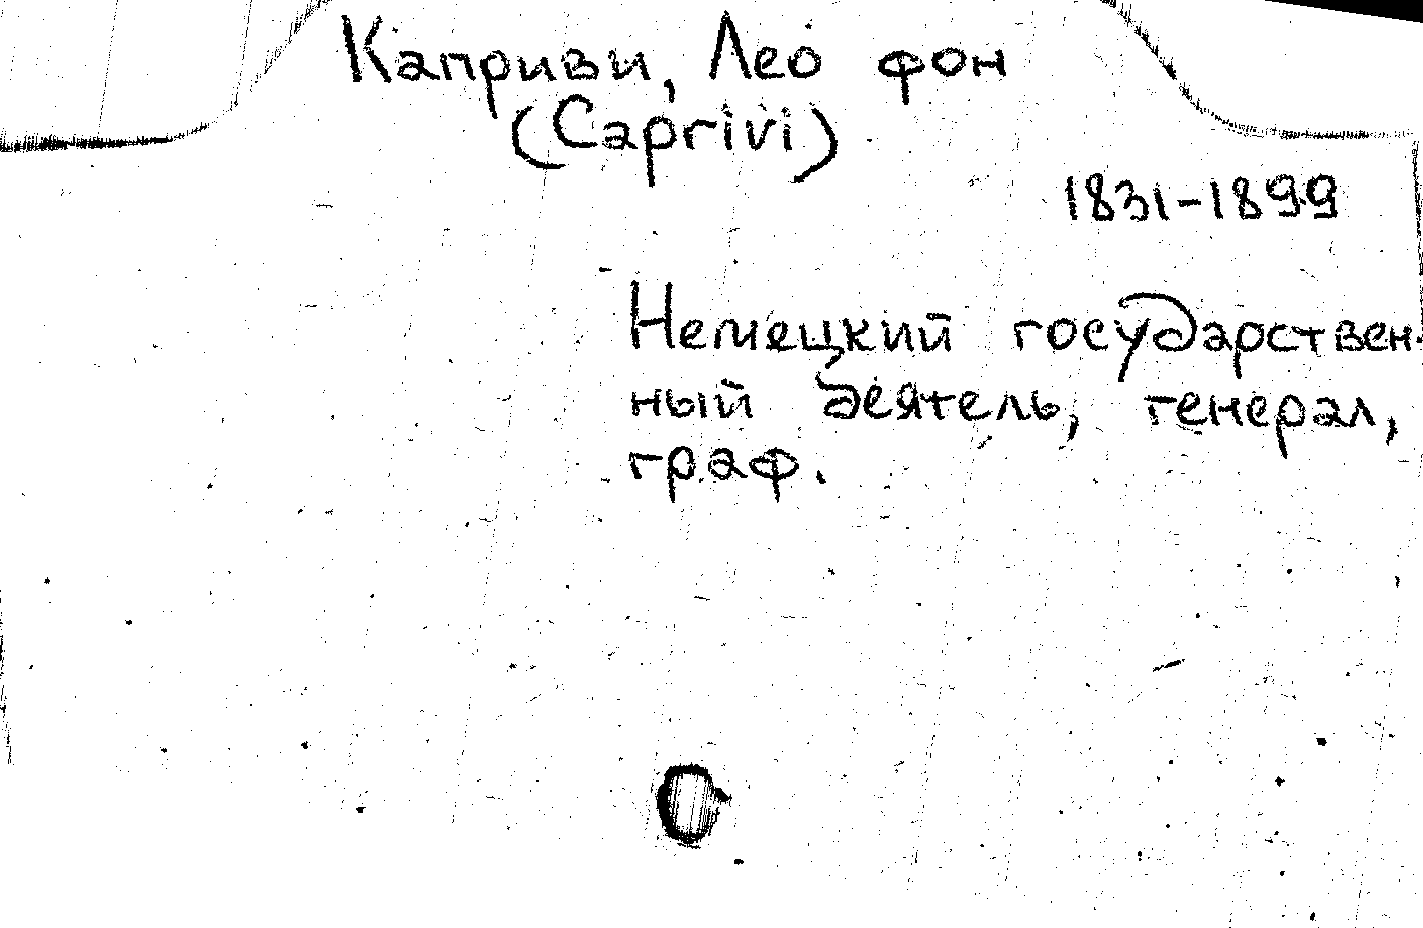 Каприви, Лео фон
(Caprivi)
1831-1899
Немецкий государствен-
ный деятель, генерал,
граф.